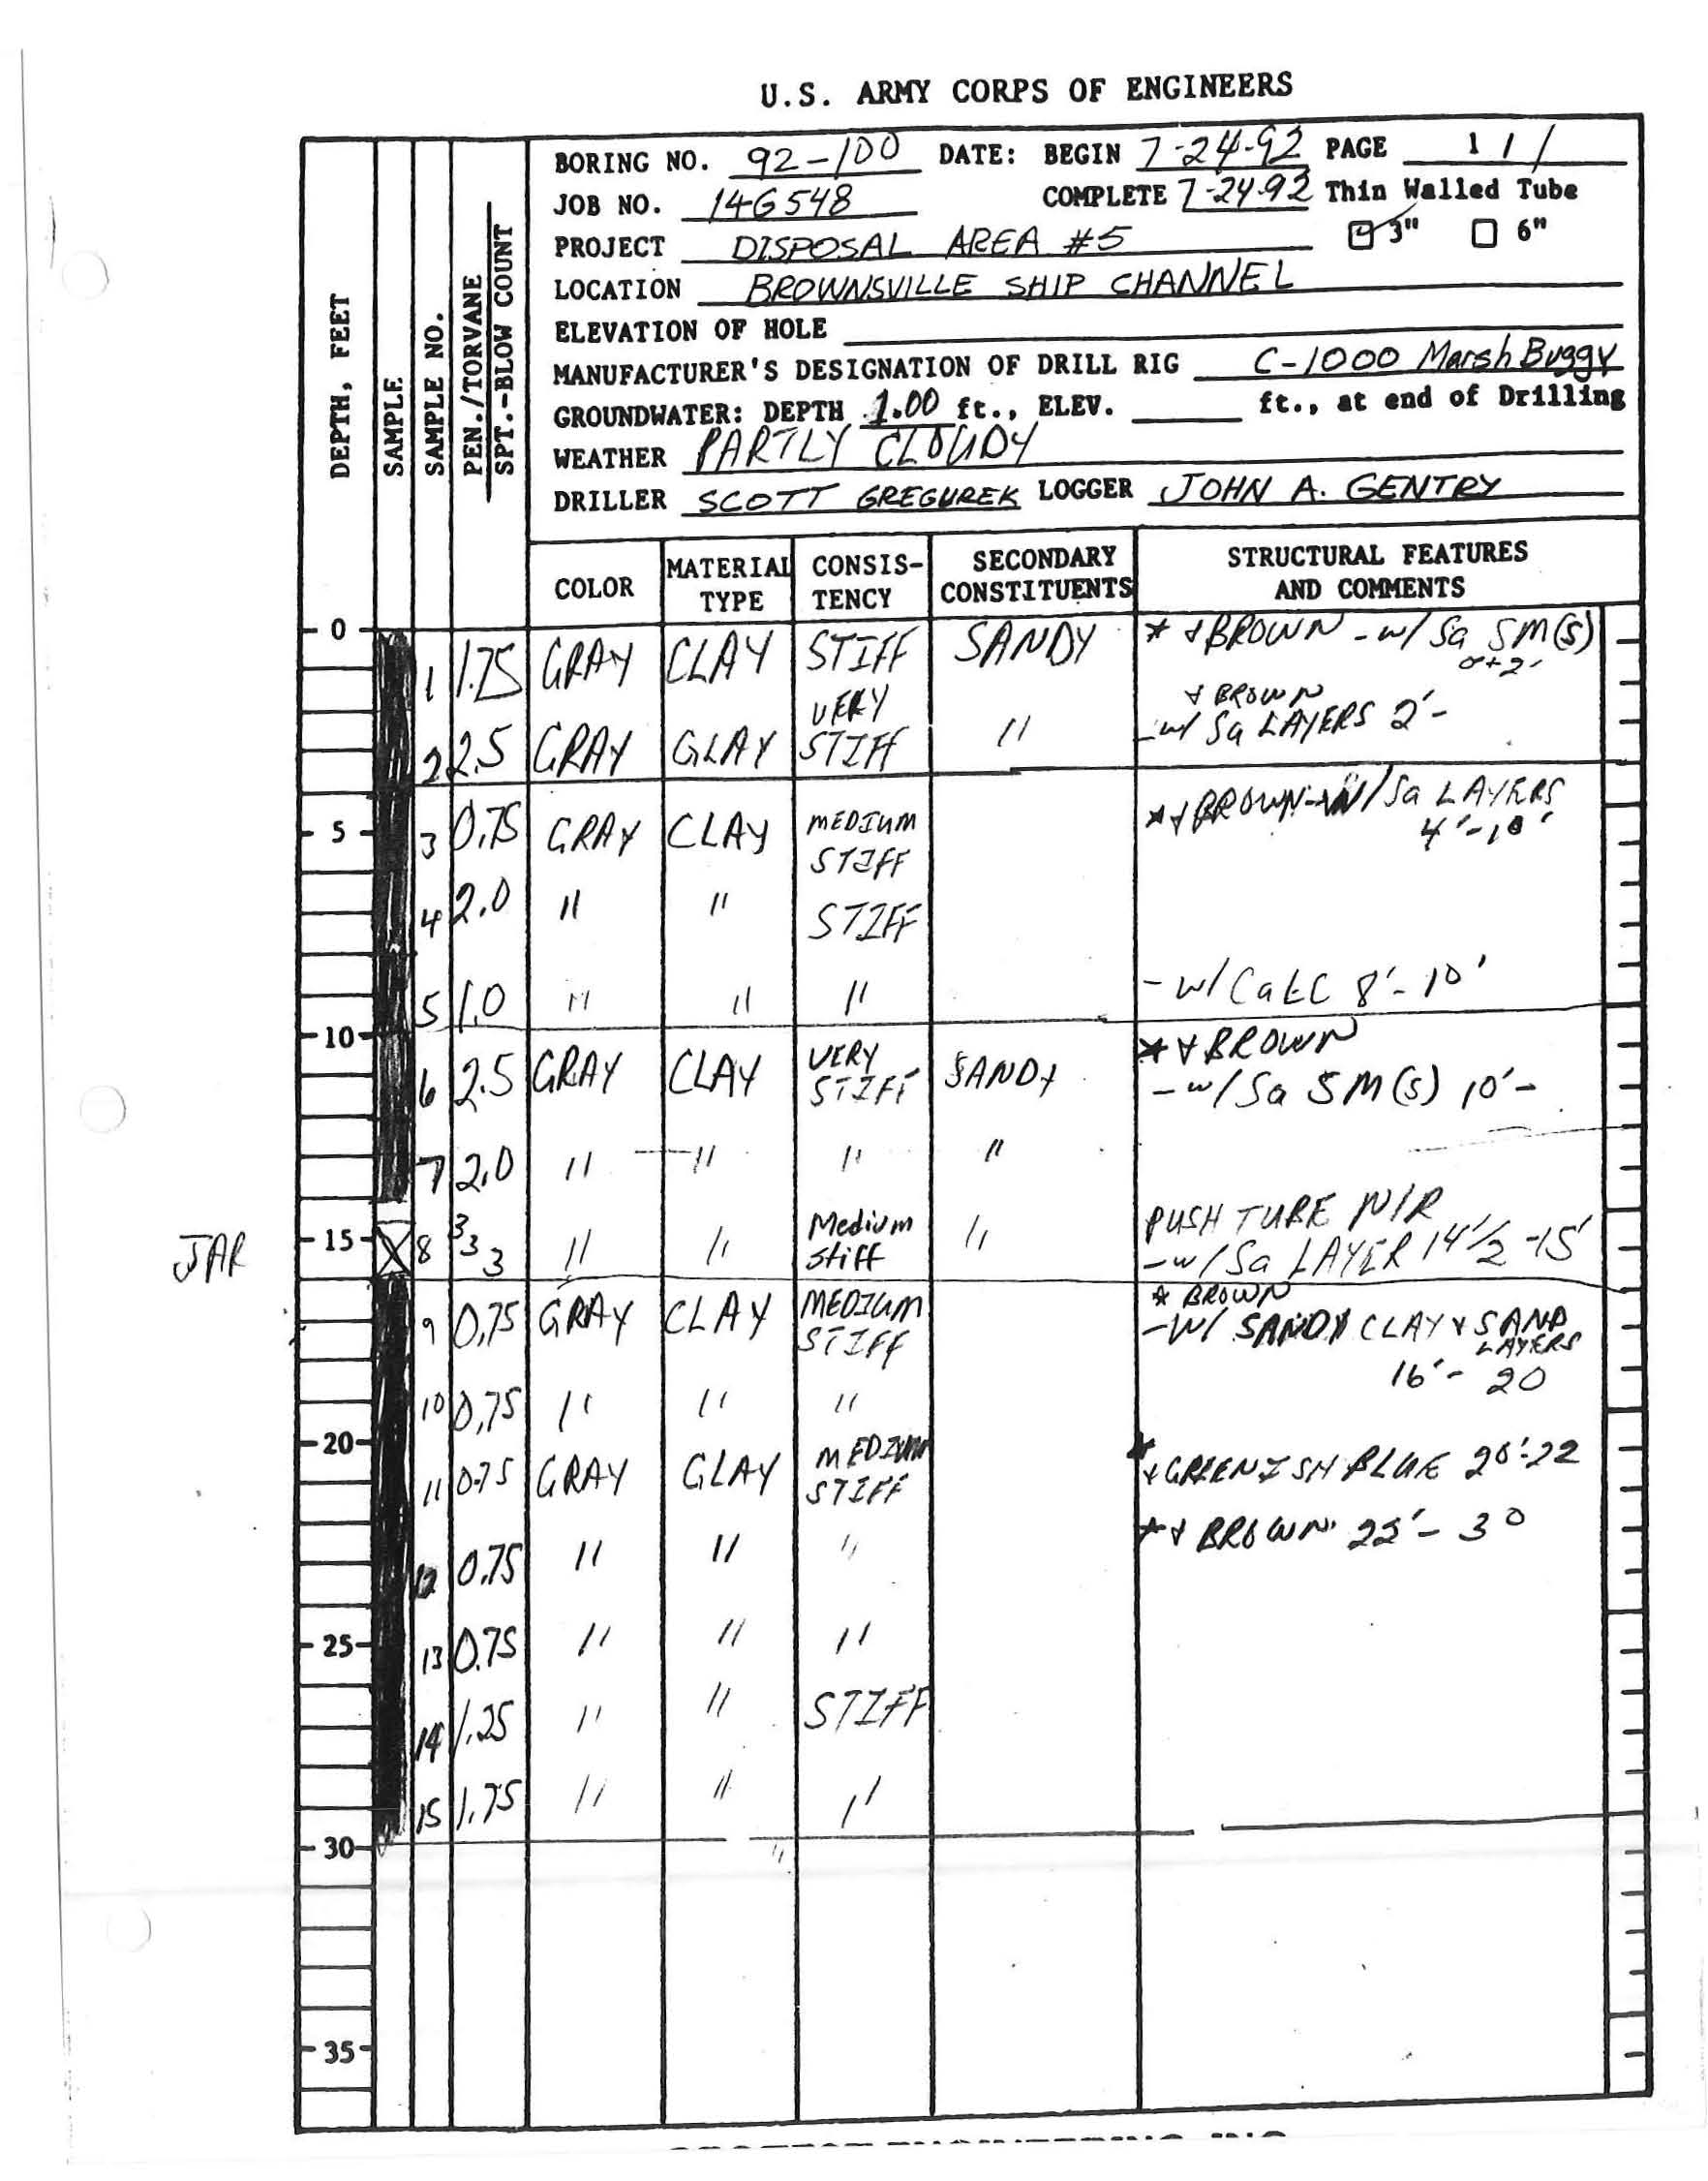 U.S. ARMY CORPS OF ENGINEERS
BORING NO. 92-100 DATE: BEGIN 7-24-92 PAGE 1 / 1
JOB NO. 14G548 COMPLETE 7-24-92 Thin Walled Tube
PROJECT DISPOSAL AREA #5 3" 6"
LOCATION BROWNSVILLE SHIP CHANNEL
ELEVATION OF HOLE
MANUFACTURER'S DESIGNATION OF DRILL RIG C-1000 Marsh Buggy
GROUNDWATER: DEPTH 1.00 ft., ELEV. ft., at end of Drilling
WEATHER PARTLY CLOUDY
DRILLER SCOTT GREGUREK LOGGER JOHN A. GENTRY
DEPTH, FEET
SAMPLE
SAMPLE NO.
PEN./TORVANE
SPT.-BLOW COUNT
COLOR
MATERIAL TYPE
CONSIS-TENCY
SECONDARY CONSTITUENTS
STRUCTURAL FEATURES AND COMMENTS
0
1 1.75 GRAY CLAY STIFF SANDY * & BROWN - w/ Sa SM(S)
& BROWN
2 2.5 GRAY CLAY VERY STIFF " - w/ Sa LAYERS 2'-
5 3 0.75 GRAY CLAY MEDIUM STIFF * & BROWN - W/ Sa LAYERS
4'-10'
4 2.0 " " STIFF
5 1.0 " " " - w/ Calc 8'-10'
10
6 2.5 GRAY CLAY VERY STIFF SANDY * & BROWN
- w/ Sa SM(S) 10'-
7 2.0 " " " "
JAR 15 8 3 3 3 " " Medium Stiff " PUSH TUBE N/R
- w/ Sa LAYER 14 1/2 - 15'
* BROWN
9 0.75 GRAY CLAY MEDIUM STIFF - W/ SANDY CLAY & SAND LAYERS
16'- 20
10 0.75 " " "
20
11 0.75 GRAY CLAY MEDIUM STIFF * & GREENISH BLUE 20'-22
* & BROWN 22'- 30
12 0.75 " " "
25 13 0.75 " " "
14 1.25 " " STIFF
15 1.75 " " "
30
35